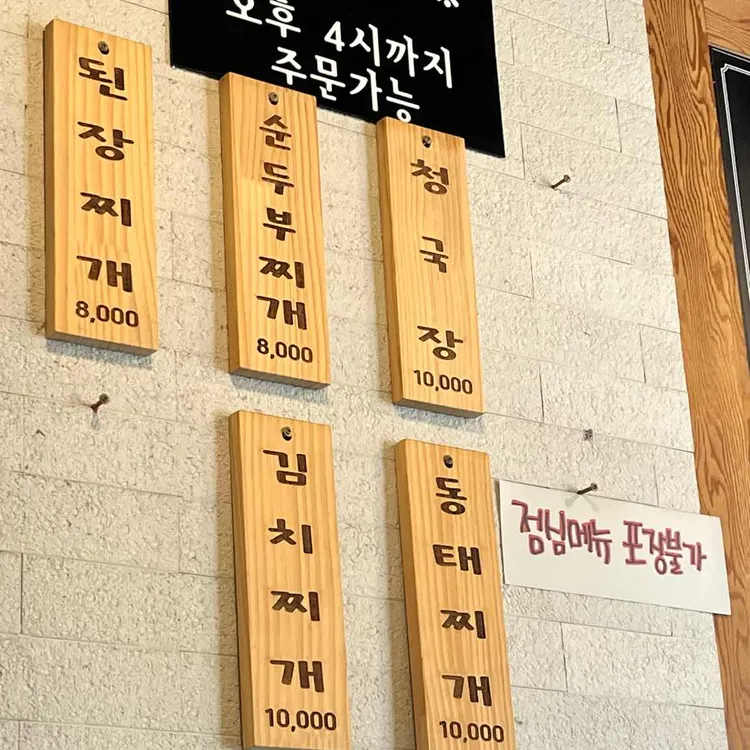 오후 4시까지
주문가능
된장찌개
8,000
순두부찌개
8,000
청국장
10,000
김치찌개
10,000
동태찌개
10,000
점심메뉴 포장불가